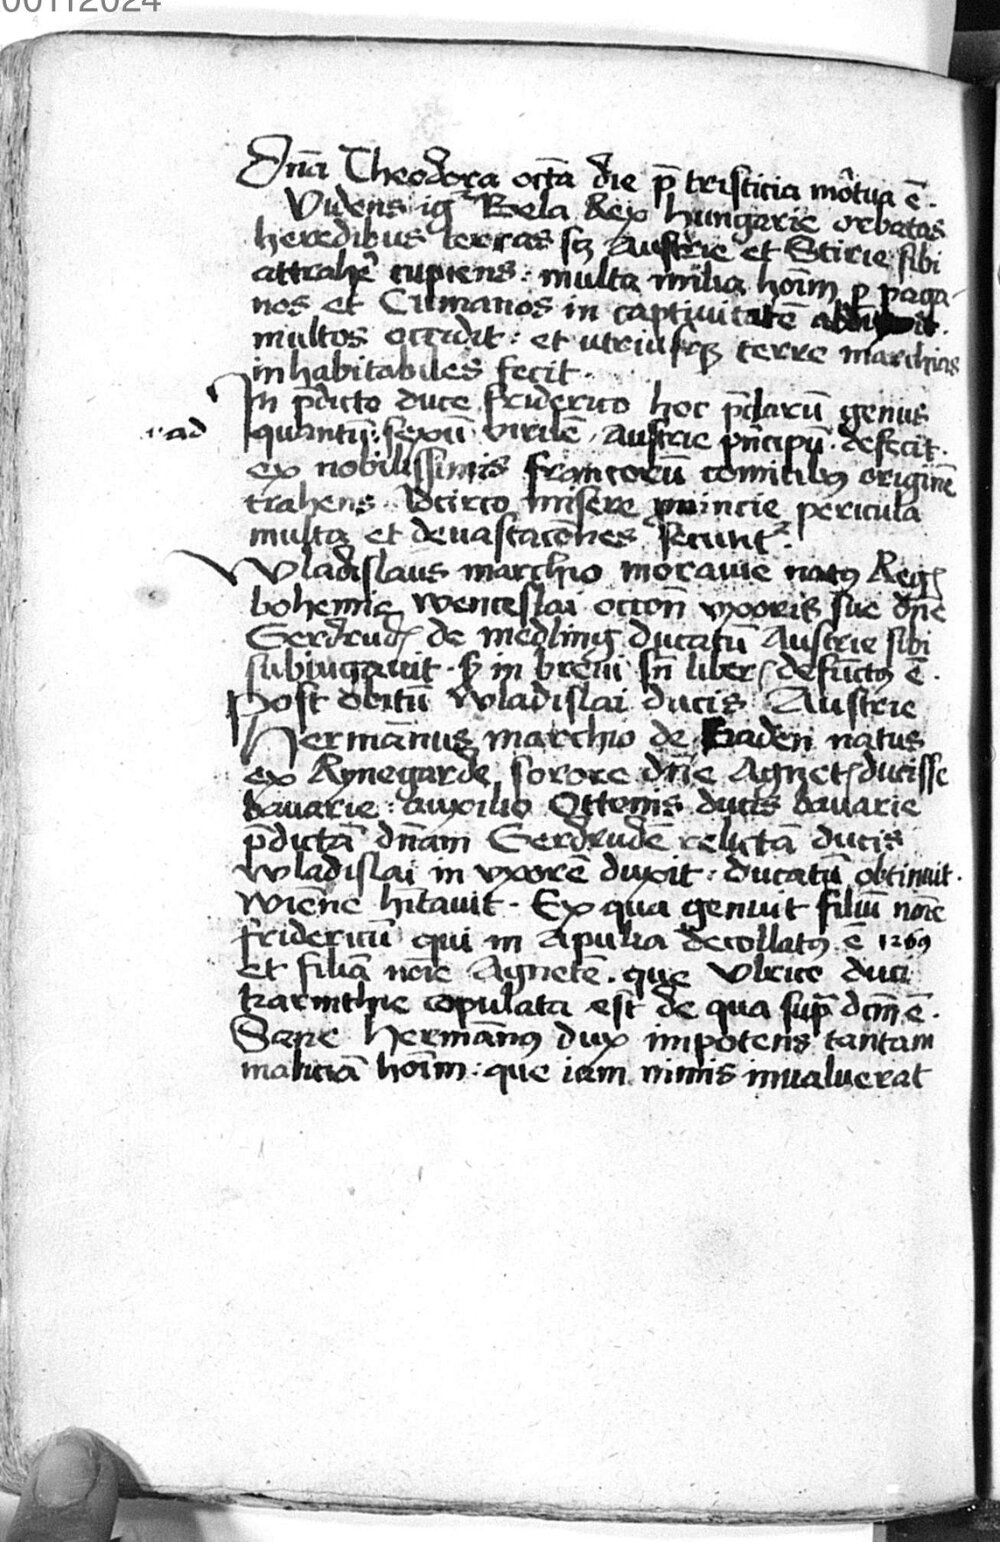 00112024
Dn̄a Theodora octā die p̄ tristicia mortua ē.
Videns igr Bela Rex hungarie orbatas
heredibus terras sz Austrie et Stirie sibi
attrahē cupiens: multa milia hoīm p paga-
nos et Cumanos in captiuitatē
multos occidit: et utriusqz terre marchias
inhabitabiles fecit.
In p̄dicto duce friderico hoc p̄clarū genus
quantū: sexū virilē Austrie p̄ncipū defecit.
ad
ex nobilissimis francorū comitibꝰ originē
trahens Idcirco misere prouincie pericula
multa et deuastacōnes secunt̄ur.
Wladislaus marchio morauie natꝰ Regꝭ
bohemie wenceslai occōn vxoris sue dn̄e
Gerdrudꝭ de medling ducatū Austrie sibi
subiugauit. sz in breui sn̄ liberꝭ defūctꝰ ē.
Post obitū Wladislai ducis Austrie
Hermānus marchio de Baden natus
ex Rynegarde sorore dn̄e Agnetꝭ ducisse
bauarie: auxilio Ottonis ducis bauarie
p̄dictā dn̄am Gerdrudē relictā ducis
Wladislai in vxorē duxit: ducatū obtinuit.
wiēne hītauit. Ex qua genuit filiū noīe
fridericū qui in Apulia decollatꝰ ē 1269
Et filiā noīe Agnetē. que Vlrico duci
karinthie copulata est de qua sup̄ dcm̄ ē.
Sane Hermānꝰ dux impotens tantam
maliciā hoīm: que iam nimis inualuerat